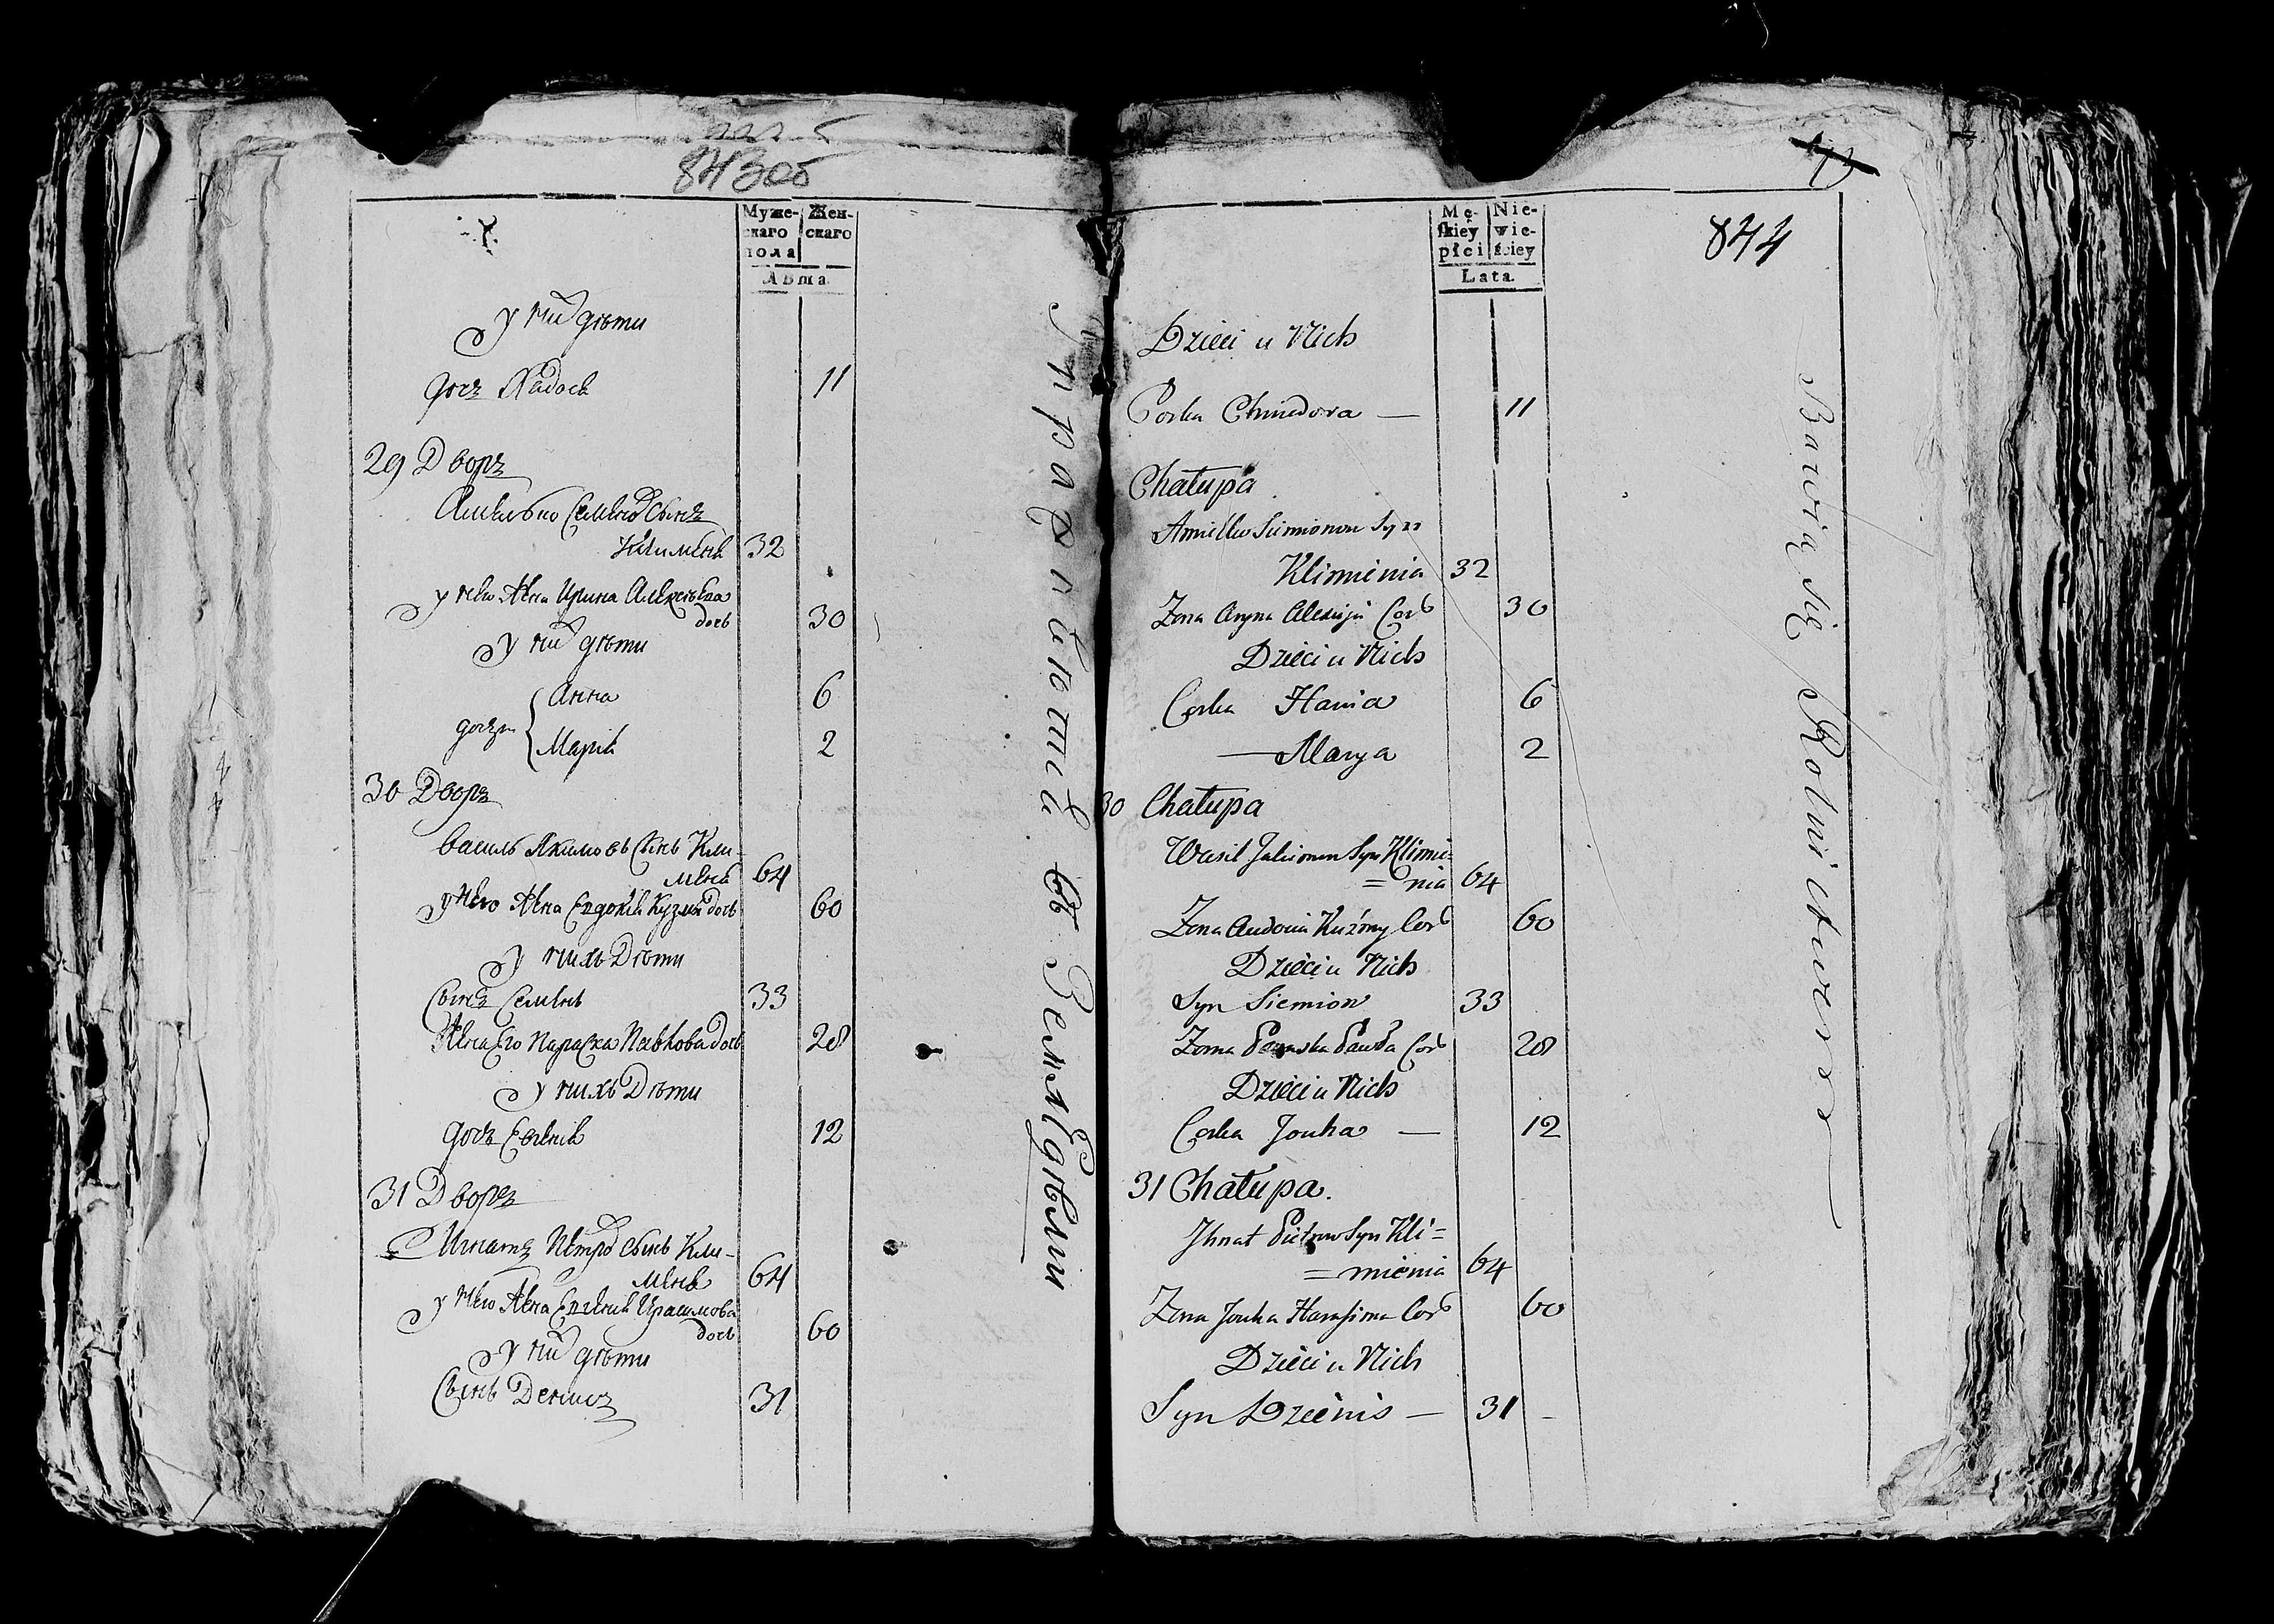 843об
Муже-
скаго
пола
Жен-
скаго
Лѣта
у них дѣти
дочъ Хадося 11
29 Дворъ
Амельяно Семенов Сынъ
Клименя 32
у него Жена Ирина Алексѣева
дочь 30
у них дѣти
дочери Анна 6
Марія 2
30 Дворъ
Василь Якимовъ Сынъ Кли-
меня 64
у него Жена Евдокія Кузмы дочь 60
у нихъ Дѣти
Сынъ Семенъ 33
Жена Его Параска Павлова дочь 28
у нихъ Дѣти
дочъ Евгенія 12
31 Дворъ
Игнатъ Петров Сынъ Кли-
меня 64
у него Жена Евгенія Ирасимова
дочь 60
у них дѣти
Сынъ Денисъ 31
упражняются въ Земледѣліи
844
Mę-
skiey
płci
Nie-
wie-
ściey
Lata
Dzieci u Nich
Corka Chwiedora — 11
Chałupa
Amillo Siemionow Syn
Klimienia 32
Zona Aryna Alexieja Cor 30
Dzieci u Nich
Corka Hania 6
— Marya 2
30 Chałupa
Wasil Jakimow Syn Klimie=
= nia 64
Zona Audocia Kuźmy Cor 60
Dzieci u Nich
Syn Siemion 33
Zona Paraska Pawła Cor 28
Dzieci u Nich
Corka Jouha — 12
31 Chałupa.
Jhnat Pietrow Syn Kli=
= mienia 64
Zona Jouha Harasima Cor 60
Dzieci u Nich
Syn Dzienis — 31 -
Bawią się Rolnictwem